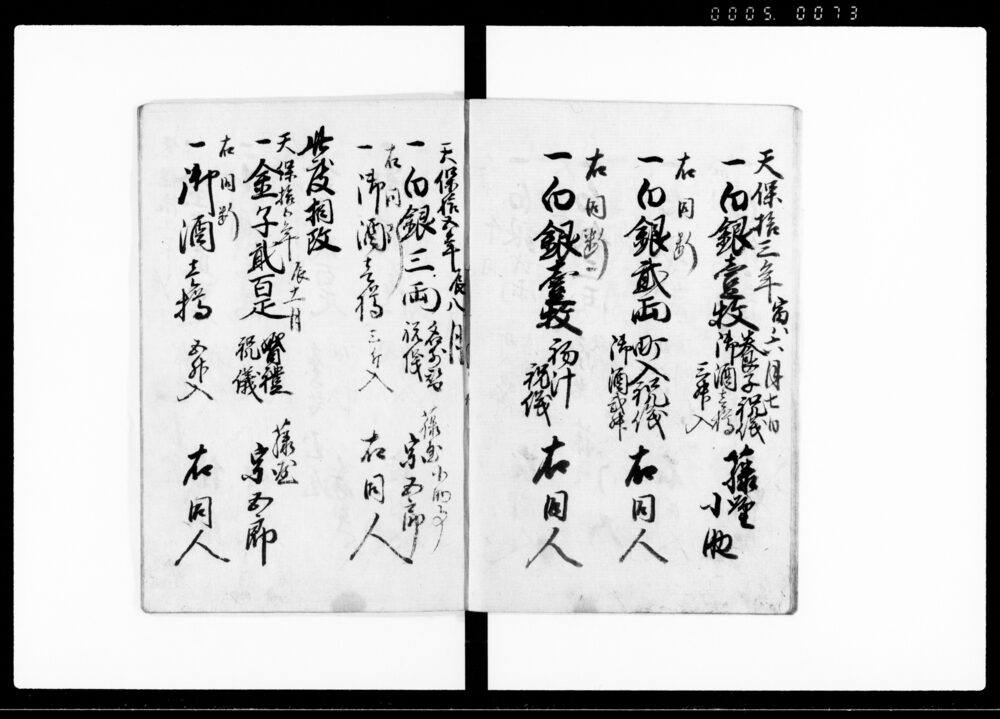 0005.0073
天保拾三年 寅六月七日
一白銀壹枚 養子祝儀 藤堂
御酒壱樽 小
三升入
右同断
一白銀貳両 町入祝儀 右同人
御酒弐升
右同断
一白銀壹枚 汁 右同人
祝儀
天保拾五年辰八月
一白銀三両 名前替 藤堂小
祝儀 宗五郎
右同断
一御酒壱樽 三升入 右同人
此度相改
天保拾五年 辰十一月
一金子貳百疋 婚禮 藤堂
祝儀 宗五郎
右同断
一御酒壱樽 五升入 右同人